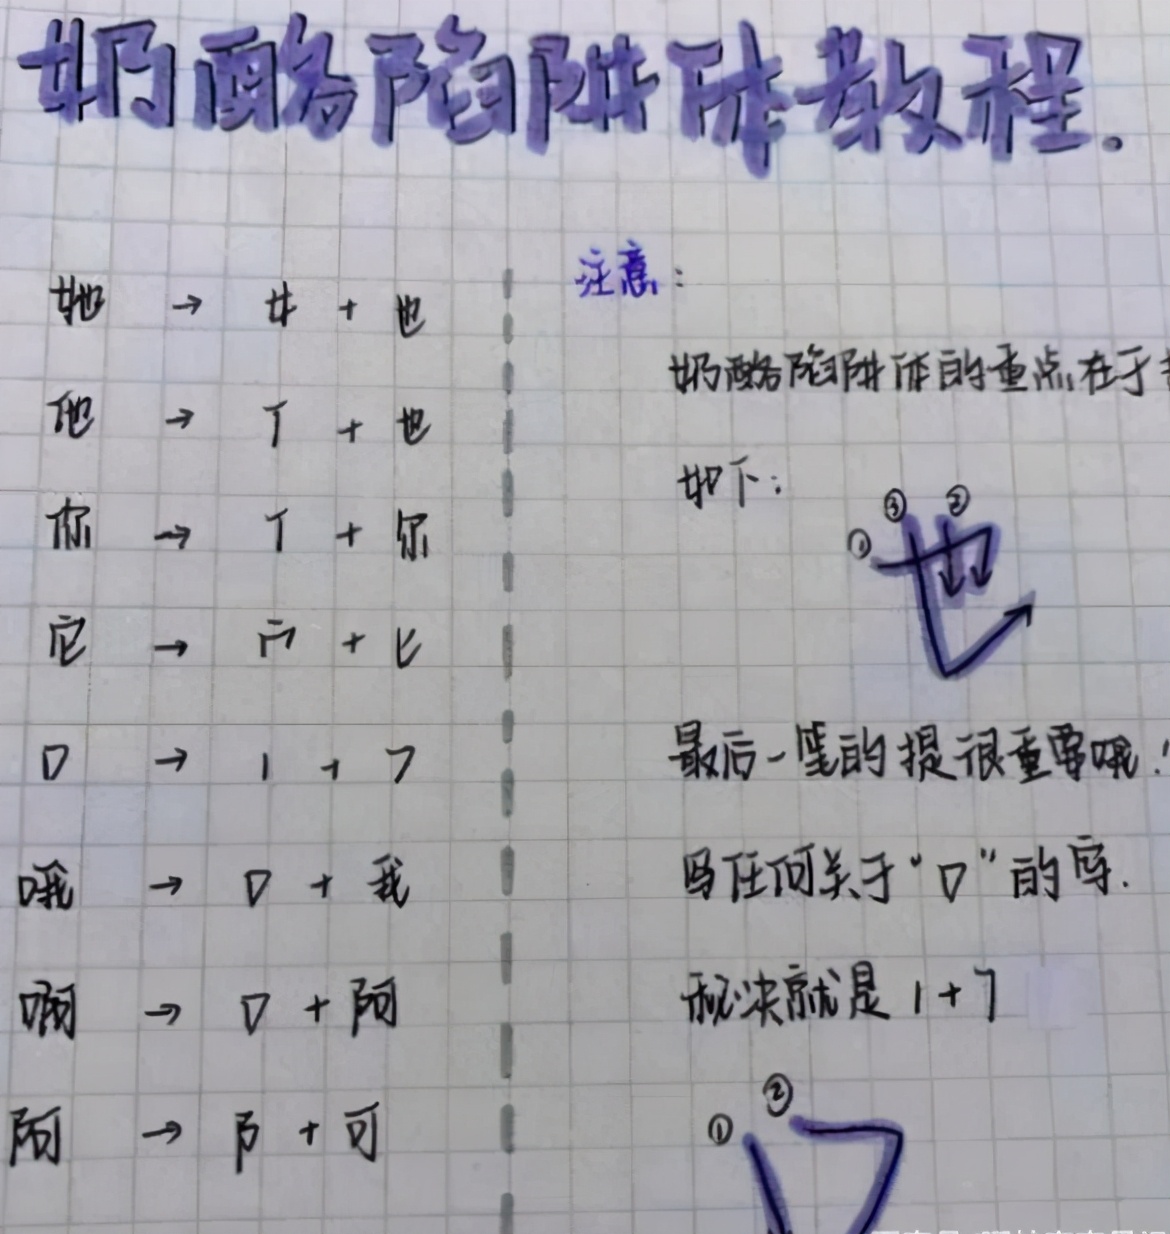 奶酪陷阱体教程.
她 → 女 + 也
他 → 亻 + 也
你 → 亻 + 尔
它 → 宀 + 匕
口 → 1 + 7
哦 → 口 + 我
啊 → 口 + 阿
阿 → 阝 + 可
注意:
奶酪陷阱体的重点在于
如下:
① ③ ②
也
最后一笔的提很重要哦!
写任何关于“口”的字.
秘决就是 1+7
① ②